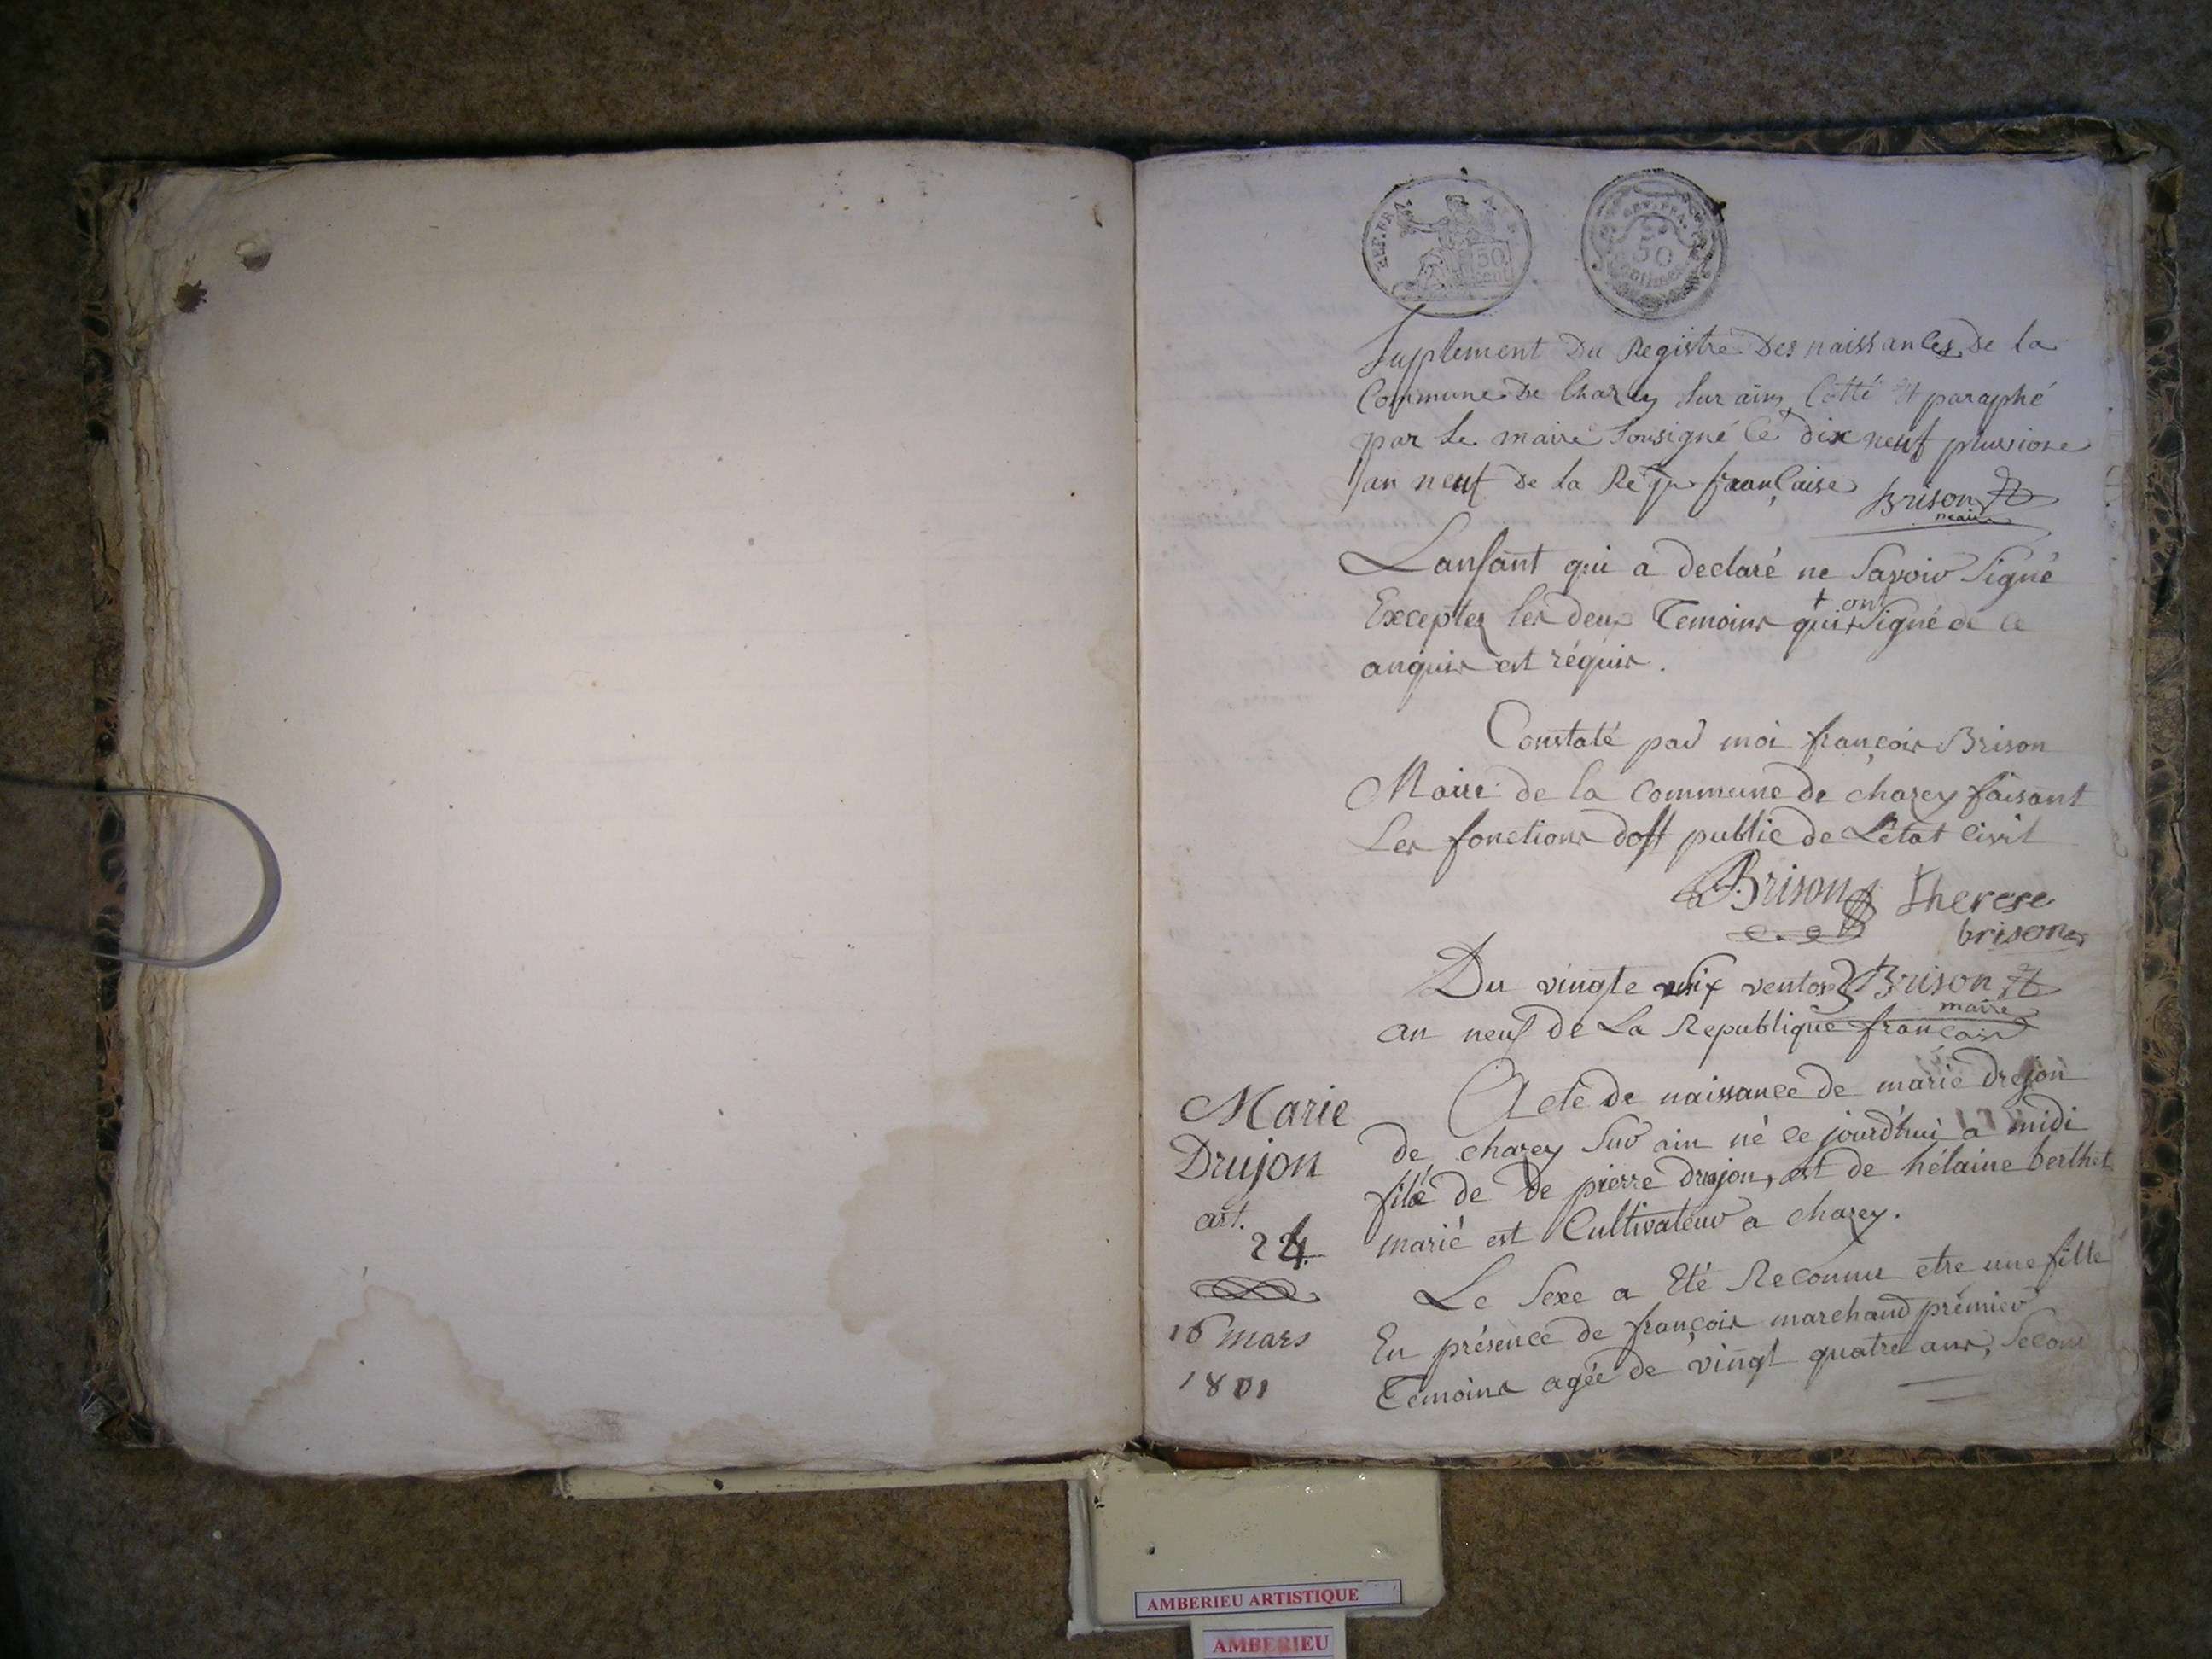 REP. FRA.
50
cent
REP. FRA.
50
centimes
Suplement Du Registre Des naissances De la
Commune De Charey Sur ain, Cotté Et paraphé
par le maire Sousigné Ce dix neuf pluviose
lan neuf De la Rép. francaise Brison
maire
Lanfant qui a declaré ne Savoir Signé
Exceptez les deux Temoins qui ont Signé de ce
anquis est réquis.
Constaté par moi françois Brison
Maire de la Commune de charey faisant
Les fonctions doff public de L'état Civil
Brison therese
brison
Du vingte six ventose Brison
maire
an neuf de La Republique français
Marie
Drujon
art.
24
16 mars
1801
Acte de naissance de marie drejon
de charey Sur ain né ce jourd'hui a midi
fille de De pierre drujon, est de hélaine berthet
marié est Cultivateur a charey.
Le Sexe a Eté Reconnu etre une fille
En présence de françois marchand prémier
Temoins agée de vingt quatre ans, Second
AMBERIEU ARTISTIQUE
AMBERIEU